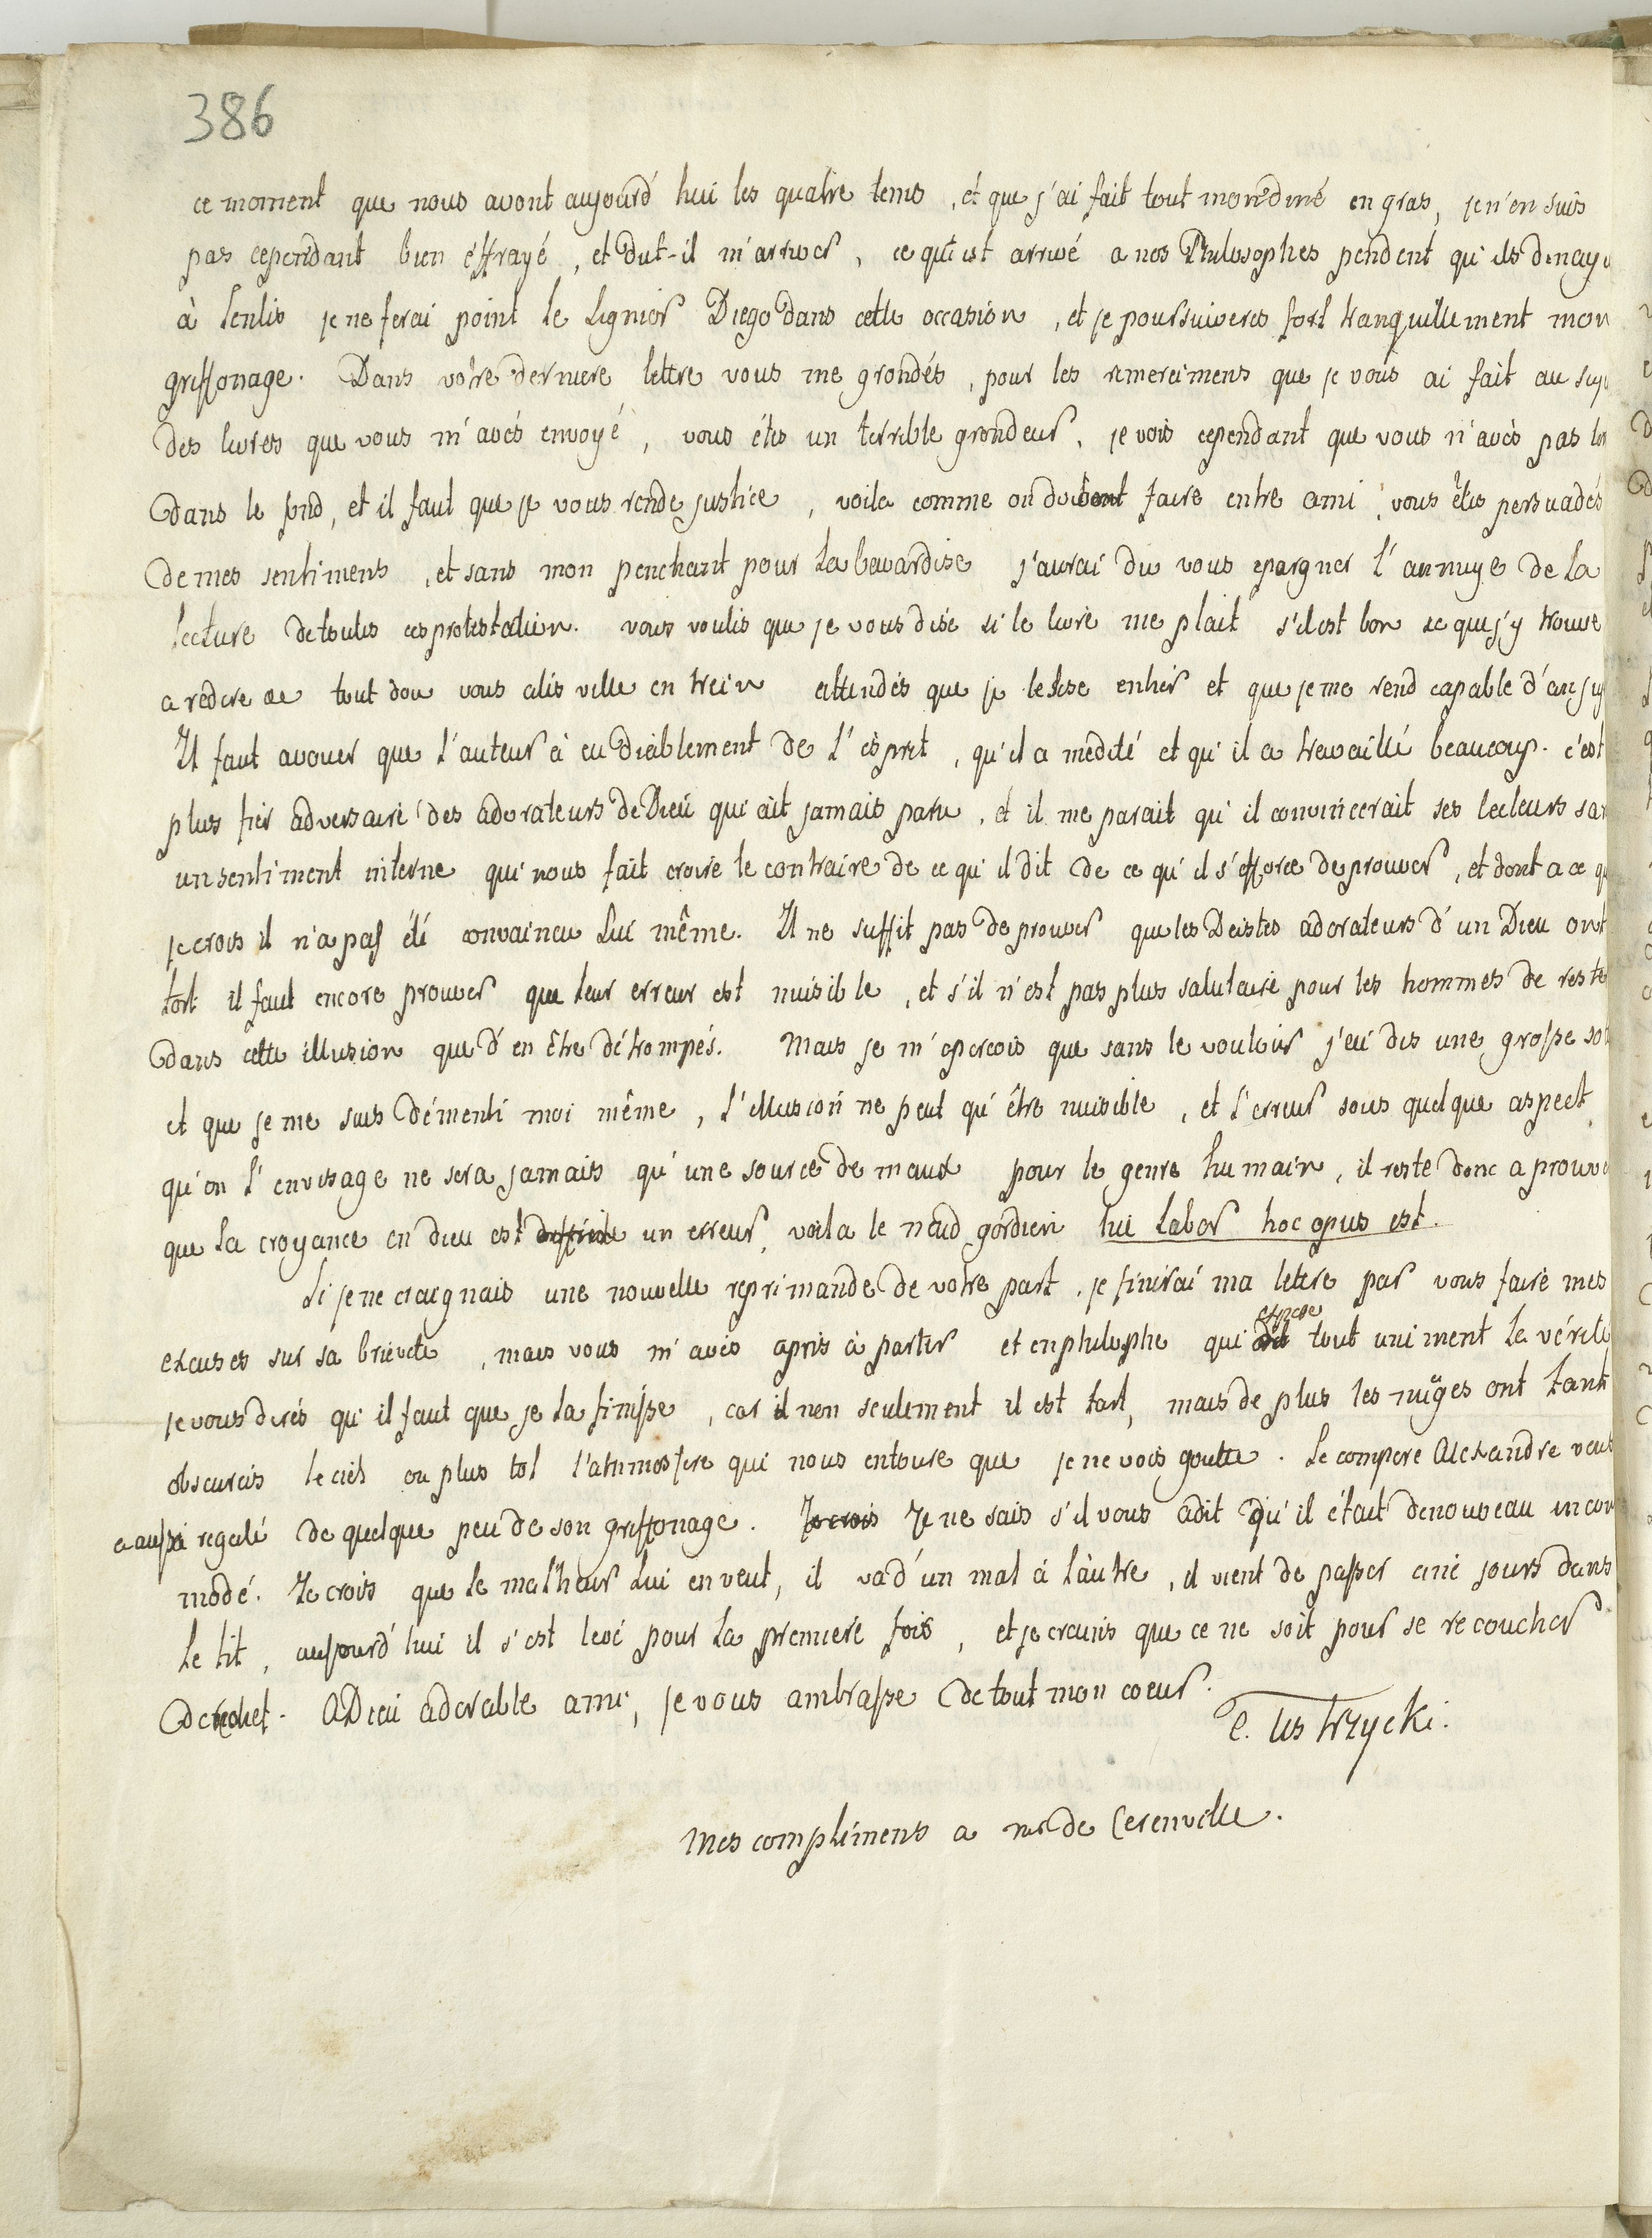 386
ce moment que nous avont aujourd'hui les quatre tems, et que j'ai fait tout mon diné en gras, je n'en suis
pas cependant bien effrayé, et dut-il m'arriver, ce qui est arrivé a nos Philosophes pendent qu'ils dinay
à Senlis je ne ferai point le Signior Diego dans cette occasion, et je poursuiveres fort tranquillement mon
griffonage. Dans vôtre derniere lettre vous me grondés, pour les remerciments que je vous ai fait au suj
des livres que vous m'avés envoyé, vous étes un terrible grondeur, je vois cependant que vous n'avés pas tor
dans le fond, et il faut que je vous rende justice, voila comme on doivent faire entre ami, vous êtes persuadés
de mes sentiments, et sans mon penchant pour la bavardise j'aurai du vous epargner l'annuye de la
lecture de toutes ces protestation. vous voulis que je vous dise si le livre me plait s'il est bon ce que j'y trouve
a redire tout dou vous alis ville en trein attendés que je le lise entier et que je me rend capable d'an jug
Il faut avouer que l'auteur à eu diablement de l'esprit, qu'il a medité et qu'il a travaillé beaucoup. c'est
plus fier adversaire des adorateurs de Dieu qui ait jamais paru, et il me parait qu'il convincerait ses lecteurs san
un sentiment interne qui nous fait croire le contraire de ce qu'il dit de ce qu'il s'efforce de prouver, et dont a ce qu
je crois il n'a pas été convaincu lui même. Il ne suffit pas de prouver que les Deistes adorateurs d'un Dieu ont
tort il faut encore prouver que leur erreur est nuisible, et s'il n'est pas plus salutaire pour les hommes de reste
dans cette illusion que d'en être détrompés. Mais je m'apercois que sans le vouloir j'ai dis une grosse sot
et que je me suis démenti moi même, l'illusion ne peut qu'être nuisible, et l'erreur sous quelque aspect
qu'on l'envisage ne sera jamais qu'une source de maux pour le genre humain, il reste donc a prouve
que la croyance en dieu est un erreur, voila le nœud gordien hui labor hoc opus est.
Si je ne craignais une nouvelle reprimande de votre part, je finirai ma lettre par vous faire mes
excuses sur sa brieveté, mais vous m'avés apris à parler et en philosphe qui expose tout uniment la vérité
je vous dirés qu'il faut que je la finisse, car il non seulement il est tart, mais de plus les nuÿges ont tant
obscurcis le ciel ou plus tot l'atmosfere qui nous entoure que je ne vois goutte. Le compere Alexandre vous
a aussi regalé de quelque peu de son griffonage. Je crois Je ne sais s'il vous a dit qu'il était denouveau incom
modé. Je crois que le malheur lui en veut, il va d'un mal à l'autre, il vient de passer cinc jours dans
le lit, aujourd'hui il s'est levé pour la premiere fois, et je crains que ce ne soit pour se recoucher
derechef. ADieu adorable ami, je vous ambrasse de tout mon coeur.
C. Ustrzycki.
Mes complimens a mr de Cerenville.